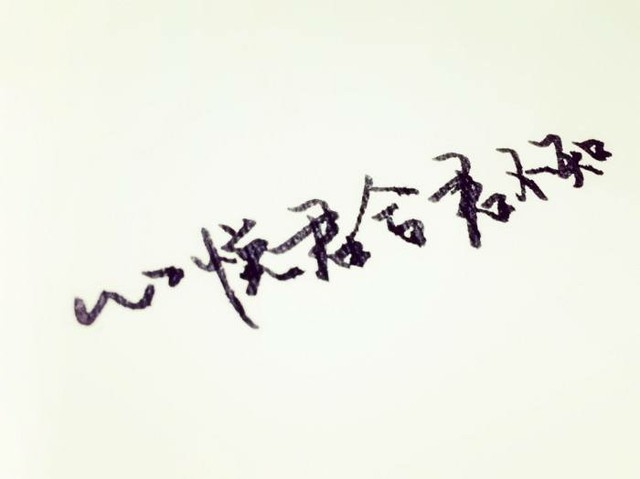 心悦君兮君不知